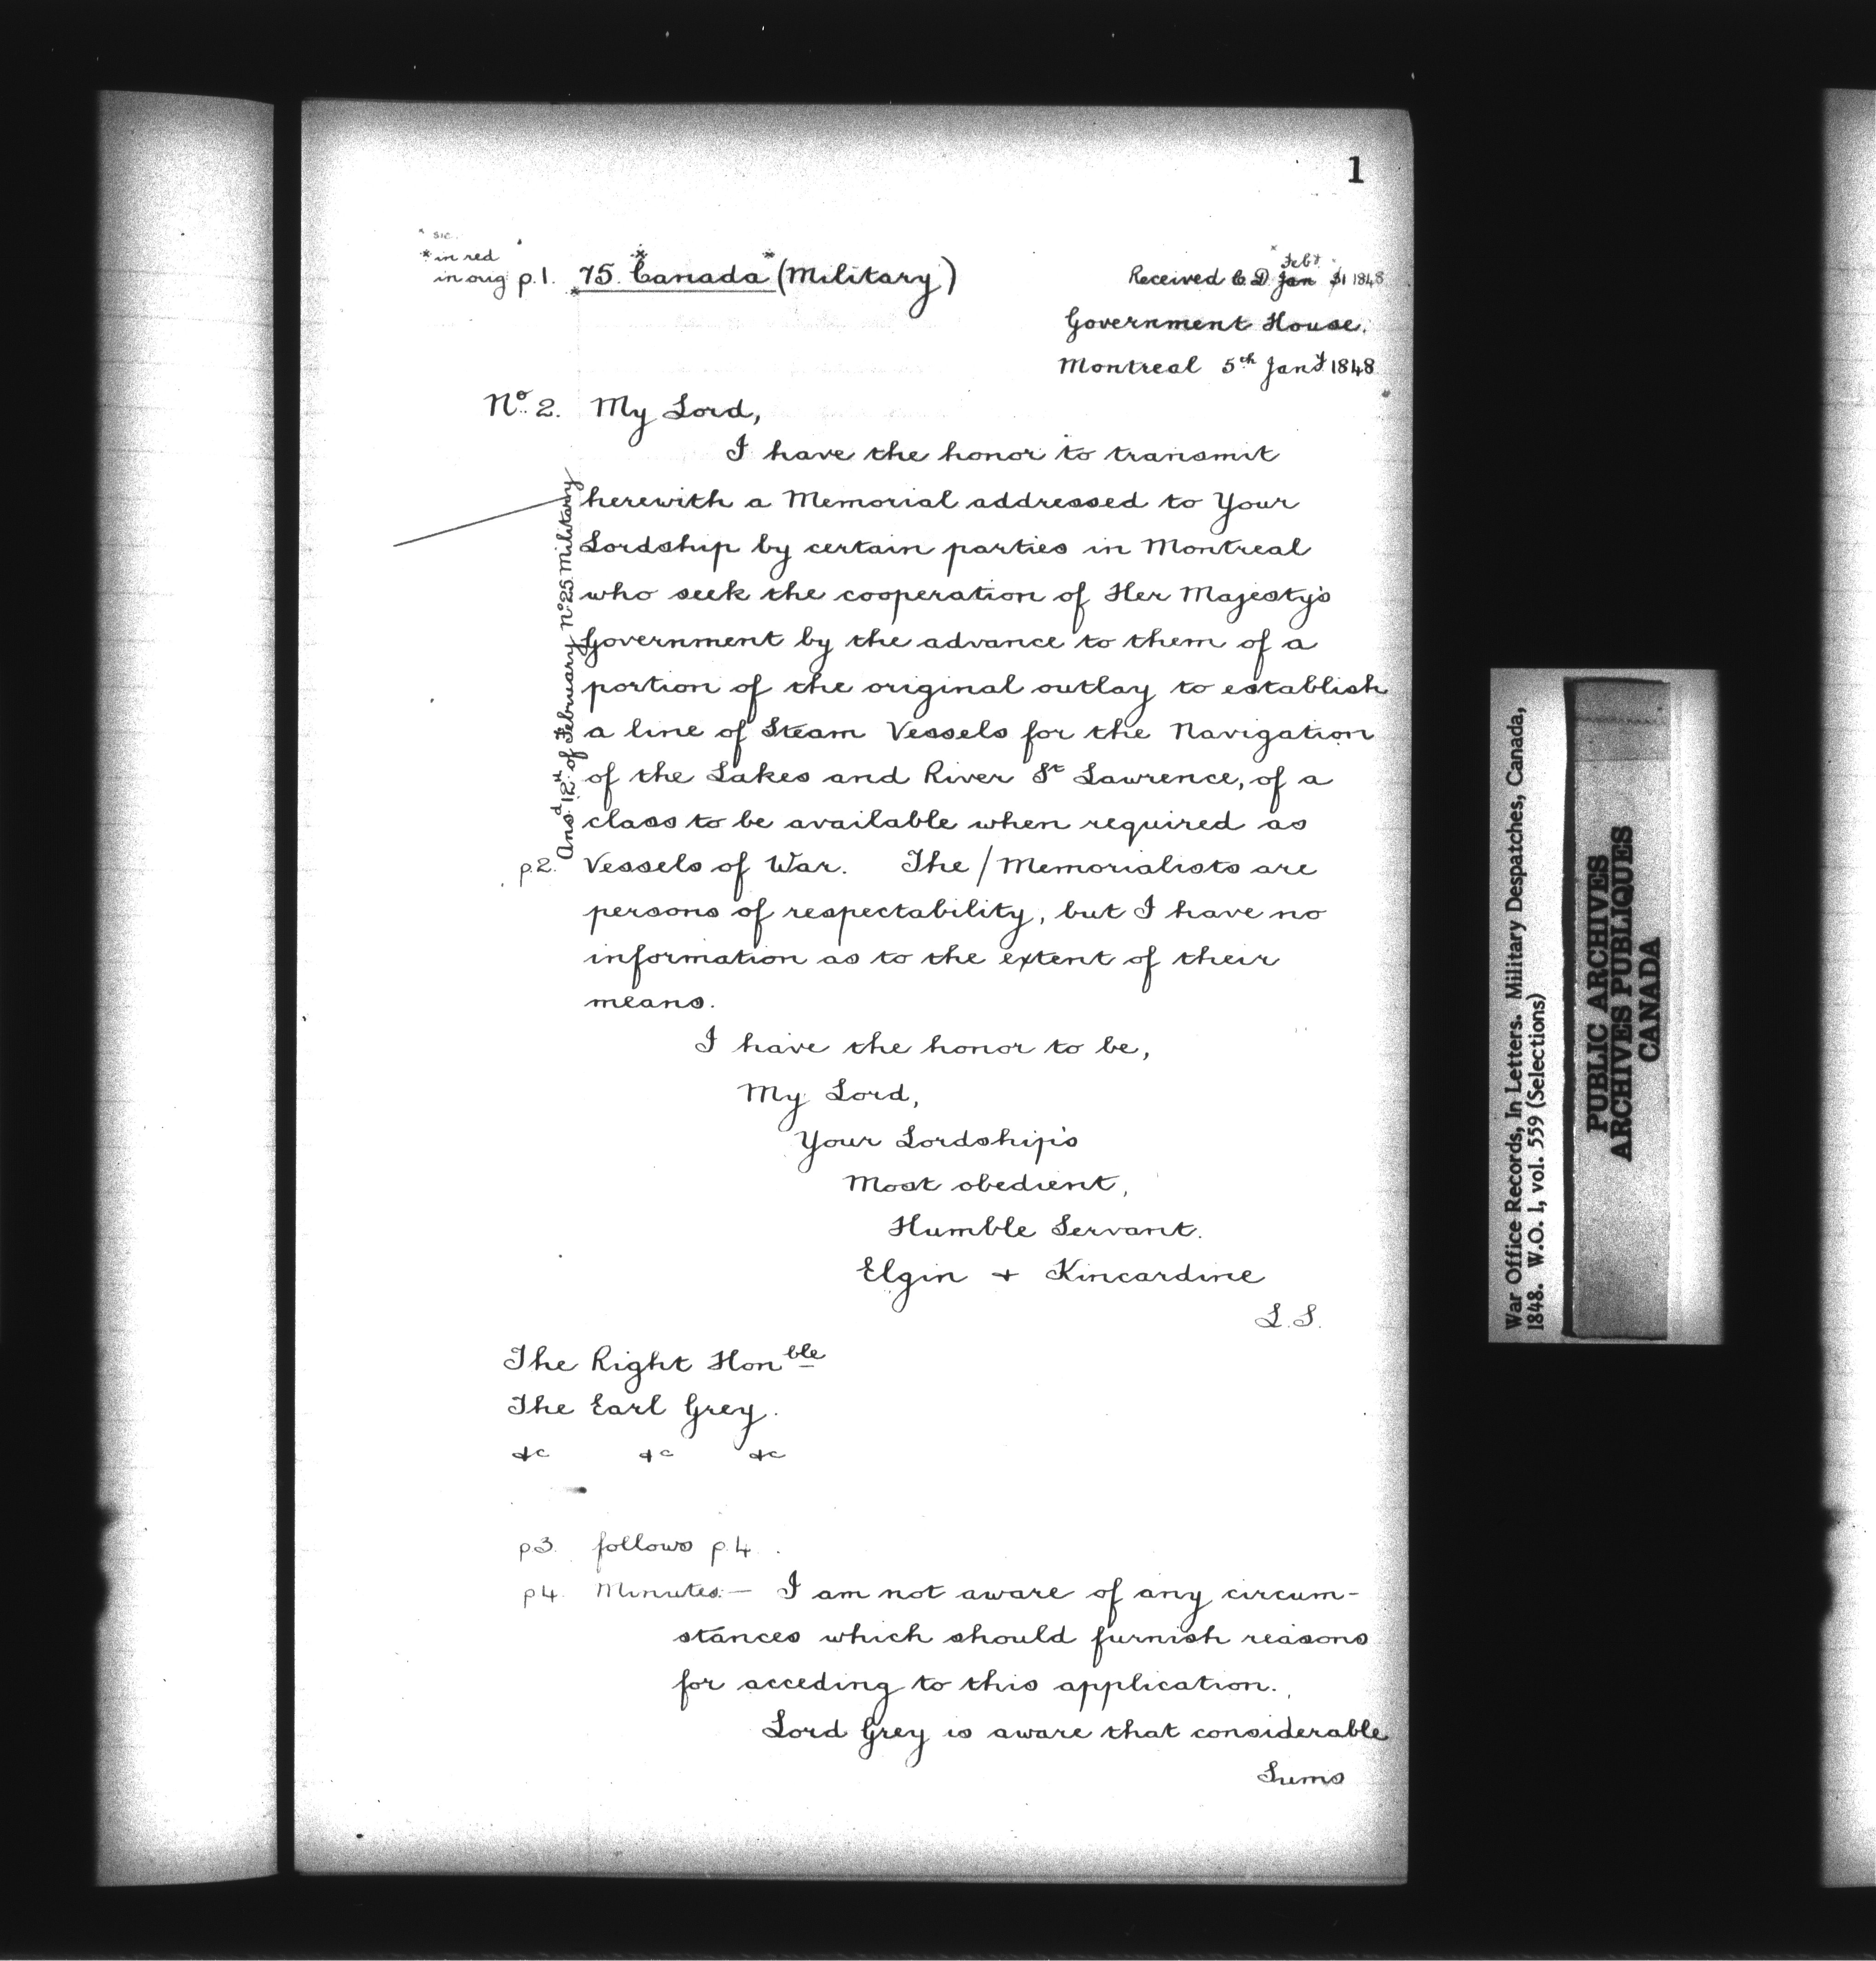 1
* sic.
* in red
in orig p.1. 75. Canada (Military)
Feby.
Received C. D. Jan 31 1848
Government House.
Montreal 5th Jany 1848
No. 2. My Lord,
I have the honor to transmit
herewith a Memorial addressed to Your
Lordship by certain parties in Montreal
who seek the cooperation of Her Majesty's
Government by the advance to them of a
portion of the original outlay to establish
a line of Steam Vessels for the Navigation
of the Lakes and River St Lawrence, of a
class to be available when required as
p.2. Vessels of War. The / Memorialists are
persons of respectability, but I have no
information as to the extent of their
means.
Ansd. 12th of February No 25 Military
I have the honor to be,
My Lord,
Your Lordship's
Most obedient,
Humble Servant.
Elgin + Kincardine
L. S.
The Right Honble
The Earl Grey.
&c &c &c
p3. follows p.4.
p4. Minutes:— I am not aware of any circum-
stances which should furnish reasons
for acceding to this application.
Lord Grey is aware that considerable
Sums
War Office Records, In Letters. Military Despatches, Canada,
1848. W.O. 1, vol. 559 (Selections)
PUBLIC ARCHIVES
ARCHIVES PUBLIQUES
CANADA